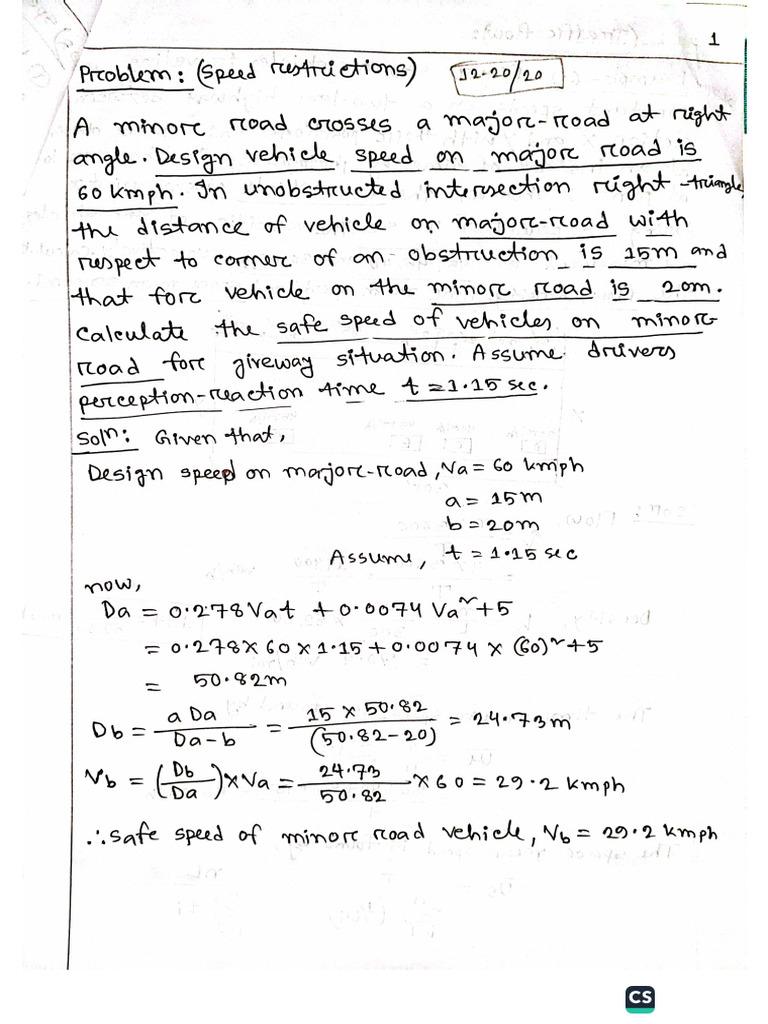 1
Problem: (Speed restrictions) 12-20/20
A minor road crosses a major-road at right
angle. Design vehicle speed on major road is
60 kmph. In unobstructed intersection right -triangle,
the distance of vehicle on major-road with
respect to corner of an obstruction is 15m and
that for vehicle on the minor road is 20m.
Calculate the safe speed of vehicles on minor-
road for giveway situation. Assume drivers
perception-reaction time t = 1.15 sec.
Soln: Given that,
Design speed on marjor-road, Va = 60 kmph
a = 15m
b = 20m
Assume, t = 1.15 sec
now,
Da = 0.278 Vat + 0.0074 Va² + 5
= 0.278 × 60 × 1.15 + 0.0074 × (60)² + 5
= 50.82m
Db = a Da / Da - b = 15 × 50.82 / (50.82 - 20) = 24.73m
Vb = (Db / Da) × Va = 24.73 / 50.82 × 60 = 29.2 kmph
∴ safe speed of minor road vehicle, Vb = 29.2 kmph
CS